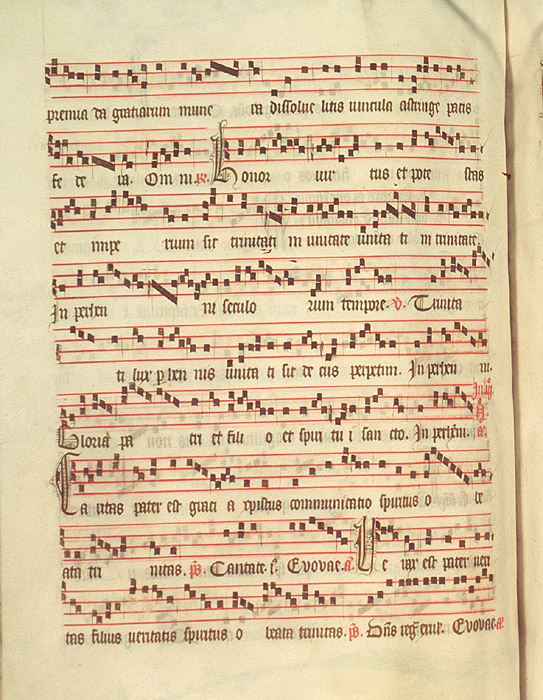 premia da gratiarum mune ra dissolue litis uincula astringe pacis
fe de ra. Om ni. R. Honor uir tus et pote stas
et impe rium sit trinitati in unitate unita ti in trinitate.
In perhen ni seculo rum tempore. V. Trinita
ti lux perhen nis unita ti sit de cus perpetim. In perhen ni.
Gloria pa tri et fili o et spiri tu i san cto. In perhenni. a.
Caritas pater est grati a xpistus communicatio spiritus o be
ata tri nitas. ps. Cantate i. Evovae. a. Ue rax est pater veri
tas filius ueritatis spiritus o beata trinitas. ps. Dns reg. Evovae. a.